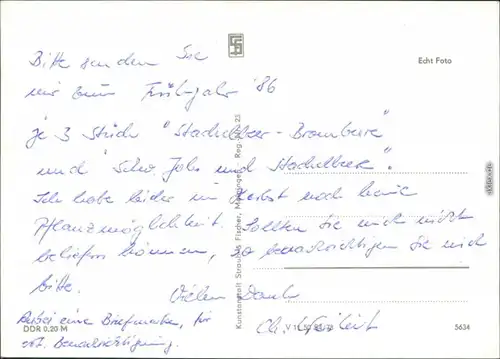 Echt Foto
Bitte senden Sie
mir zum Frühjahr '86
je 3 Stück "Stachelbeer-Brombeere"
und "Schw. Joh. und Stachelbeere".
Ich habe leider im Herbst noch keine
Pflanzmöglichkeit. Sollten Sie mich nicht
beliefern können, so benachrichtigen Sie mich
bitte. Vielen Dank
Anbei eine Briefmarke, für
evt. Benachrichtigung.
Kunstanstalt Straub & Fischer, Meiningen
DDR 0,20 M
5634